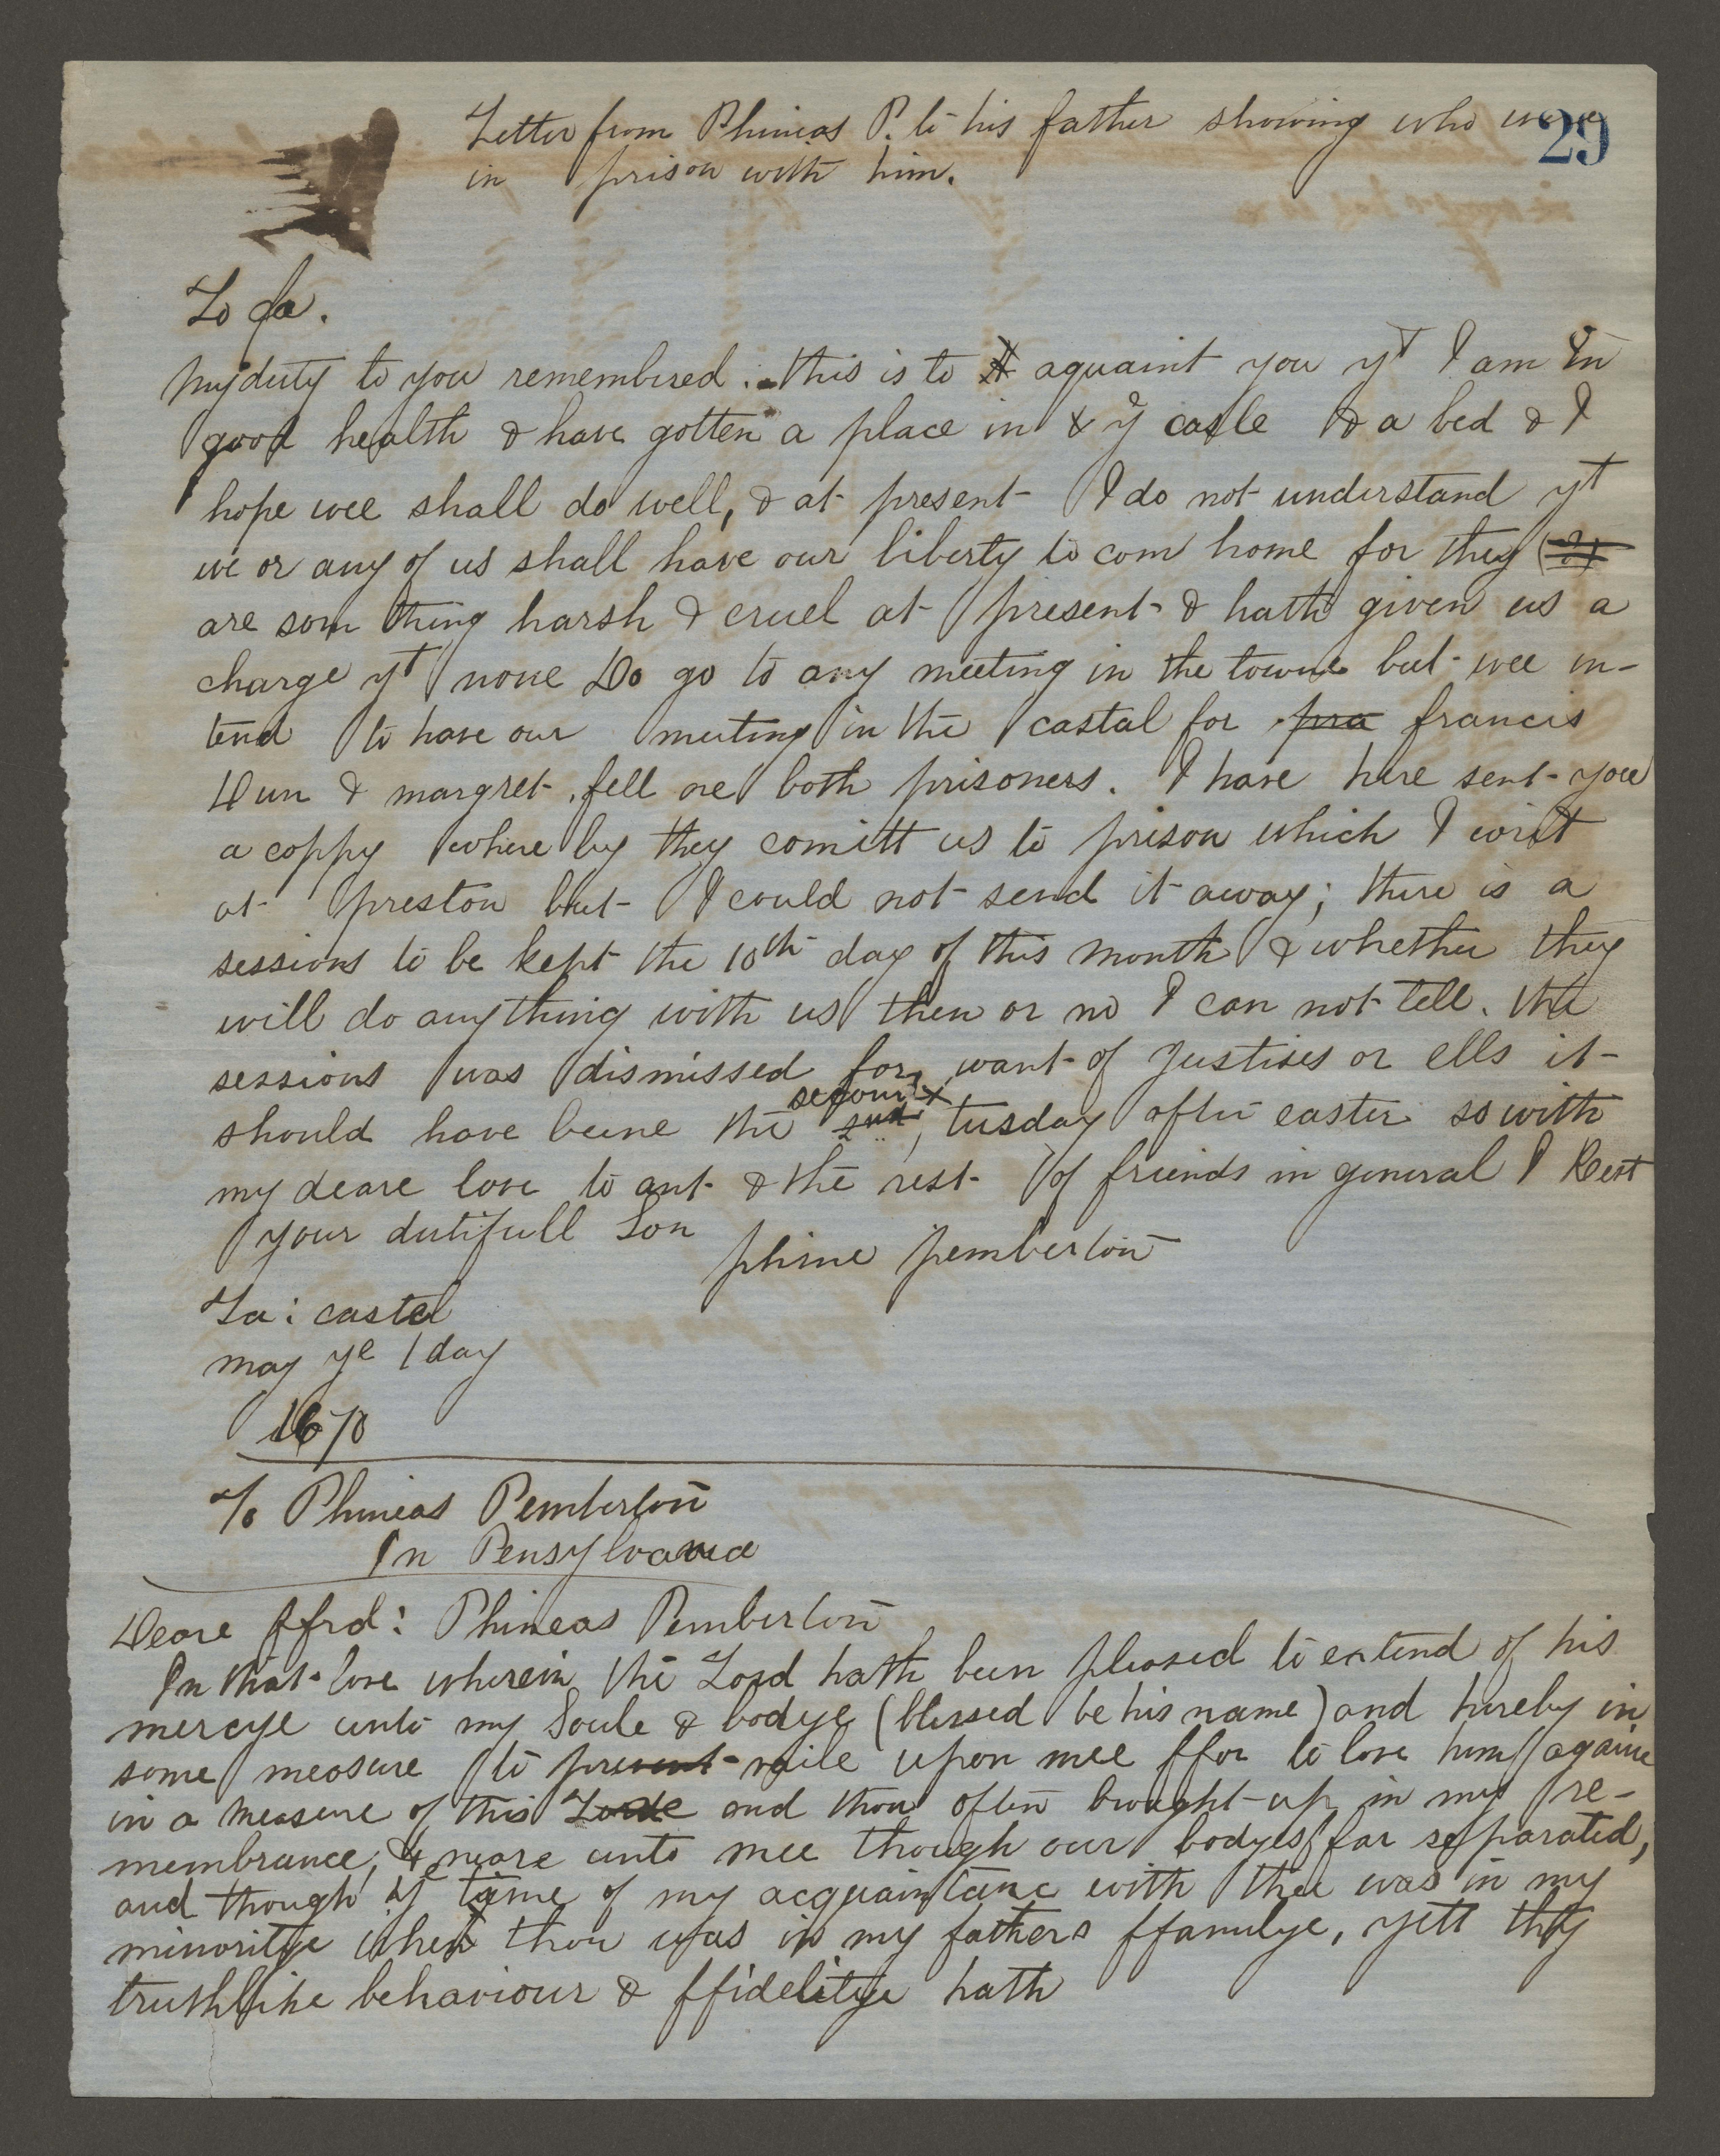 Letter from Phineas P. to his father showing who were
29
in prison with him.
To fa.
My duty to you remembred. this is to aquaint you yt I am in
good health & have gotten a place in ye casle & a bed & I
hope wee shall do well, & at present I do not understand yt
we or any of us shall have our liberty to com home for they
are som thing harsh & cruel at present & hath given us a
charge yt none Do go to any meeting in the towne but wee in-
tend to have our meeting in the castal for pra francis
Dun & margret fell are both prisoners. I have here sent you
a coppy where by they comitt us to prison which I writ
at preston but I could not send it away; there is a
sessions to be kept the 10th day of this month & whether they
will do any thing with us then or no I can not tell. the
sessions was dismissed for want of Justises or ells it
should have beene the 2nd second tusday after easter so with
my deare love to ant & the rest of friends in general I Rest
your dutifull Son
phine pemberton
La: castel
may ye 1 day
1670
To Phineas Pemberton
In Pensylvania
Deare ffrd: Phineas Pemberton
In that love wherein the Lord hath been pleased to extend of his
mercye unto my Soule & bodye (blessed be his name) and hereby in
some measure to prevent vaile upon mee ffor to love him againe
in a measure of this and thou often brought up in my re-
membrance, & neare unto mee though our bodyes far separated,
and though ye time of my acquaintance with thee was in my
minoritye when thou was in my fathers ffamulye, yett thy
truthlike behaviour & ffidelitye hath